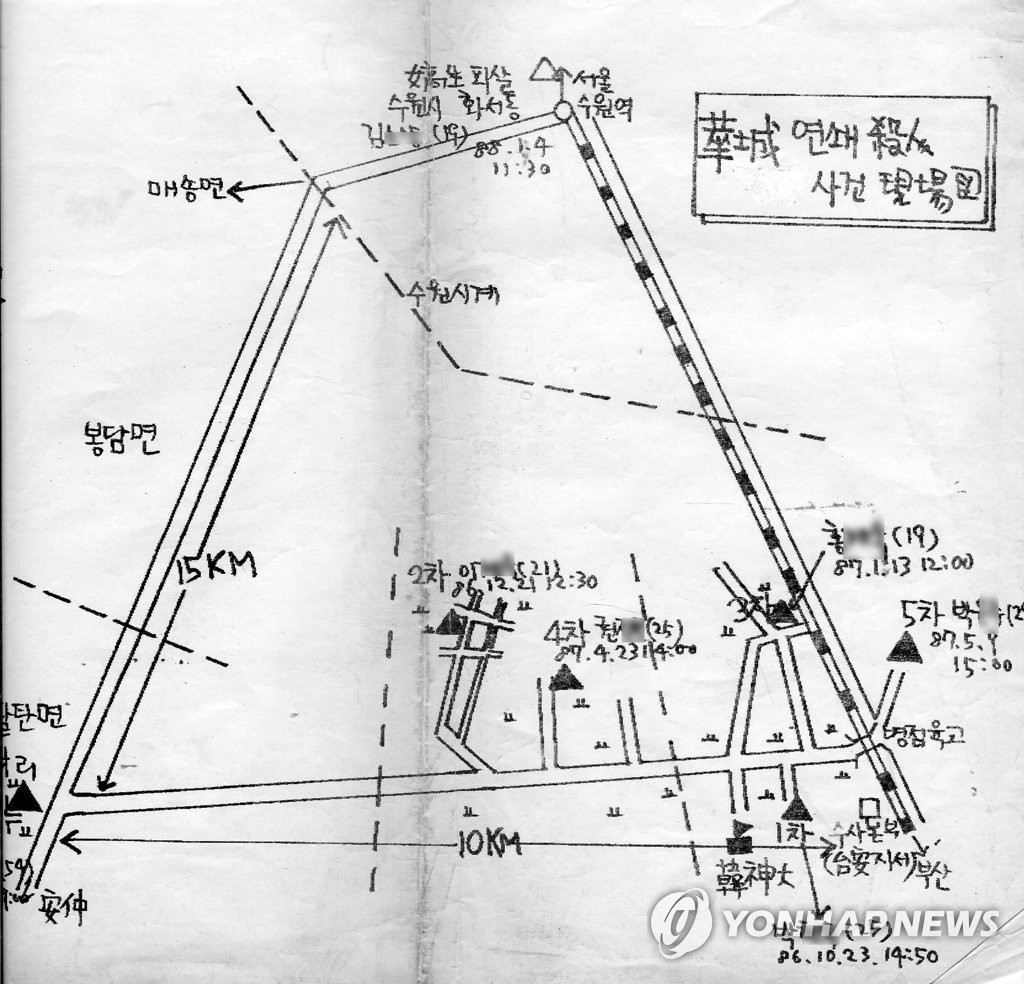 華城 연쇄 殺人
사건 現場図
女高生 피살
수원시 화서동
김 (19)
88.1.4
11:30
서울
수원역
매송면
수원시계
봉담면
15KM
2차 (21)
86.12.21 12:30
4차 (25)
87.4.23 14:00
3차
홍 (19)
87.1.13 12:00
5차 박
87.5.
15:00
병점육교
탄면
리
1차
수사본부
(台安지서)
부산
韓神大
10KM
安仲
박 (25)
86.10.23. 14:50
YONHAPNEWS